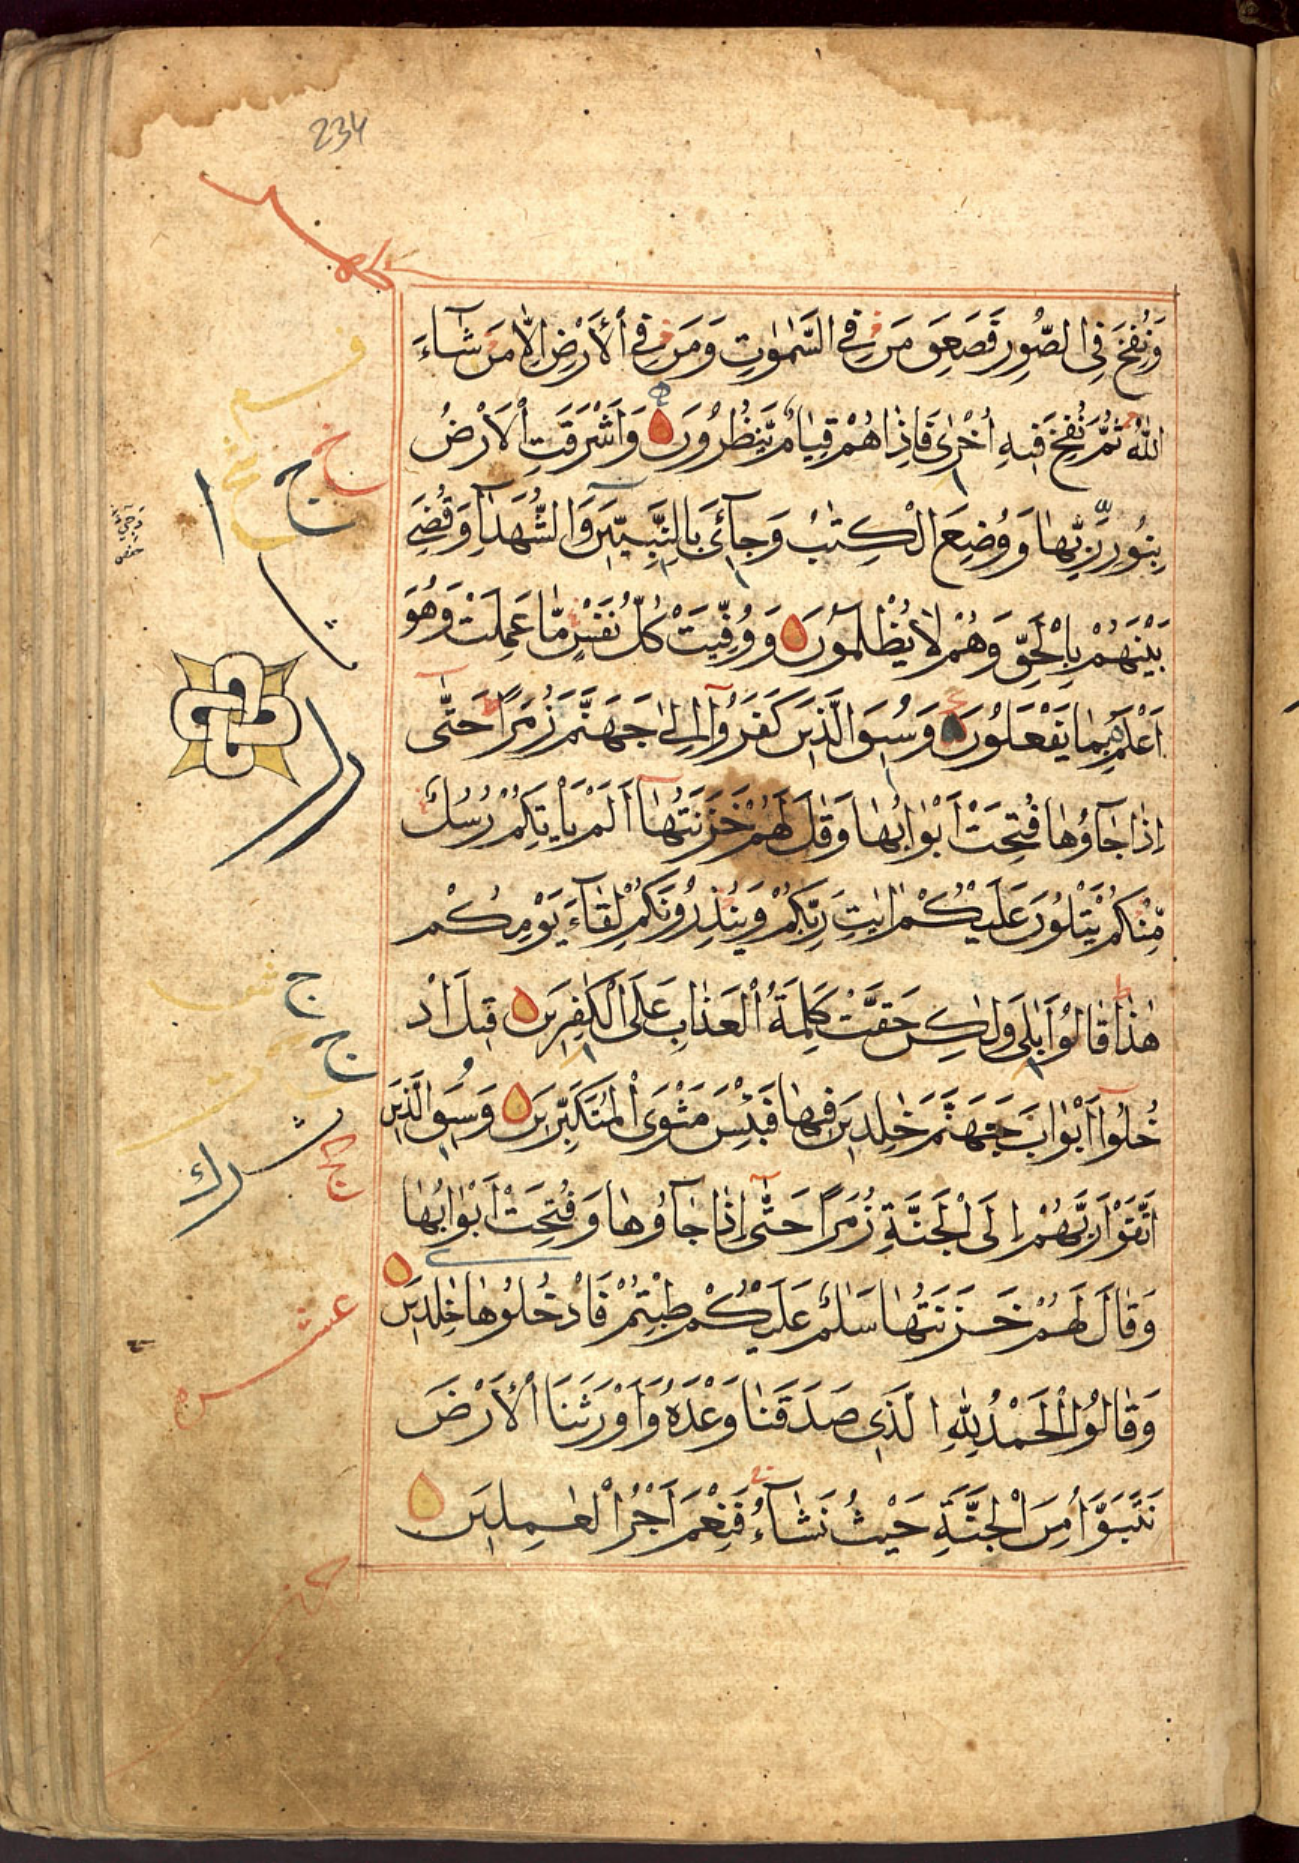 234
وَنُفِخَ فِي الصُّورِ فَصَعِقَ مَنْ فِي السَّمٰوٰتِ وَمَنْ فِي الْاَرْضِ اِلَّا مَنْ شَآءَ
اللّٰهُ ثُمَّ نُفِخَ فِيهِ اُخْرٰى فَاِذَا هُمْ قِيَامٌ يَّنْظُرُونَ وَاَشْرَقَتِ الْاَرْضُ
بِنُورِ رَبِّهَا وَوُضِعَ الْكِتٰبُ وَجِآئَ بِالنَّبِيّٖنَ وَالشُّهَدَآءِ وَقُضِيَ
بَيْنَهُمْ بِالْحَقِّ وَهُمْ لَا يُظْلَمُونَ وَوُفِّيَتْ كُلُّ نَفْسٍ مَّا عَمِلَتْ وَهُوَ
اَعْلَمُ بِمَا يَفْعَلُونَ وَسِيقَ الَّذِينَ كَفَرُوٓا اِلٰى جَهَنَّمَ زُمَرًا حَتّٰٓى
اِذَا جَآؤُهَا فُتِحَتْ اَبْوَابُهَا وَقَالَ لَهُمْ خَزَنَتُهَآ اَلَمْ يَاْتِكُمْ رُسُلٌ
مِّنْكُمْ يَتْلُونَ عَلَيْكُمْ اٰيٰتِ رَبِّكُمْ وَيُنْذِرُونَكُمْ لِقَآءَ يَوْمِكُمْ
هٰذَا قَالُوا بَلٰى وَلٰكِنْ حَقَّتْ كَلِمَةُ الْعَذَابِ عَلَى الْكٰفِرِينَ قِيلَ ادْ
خُلُوٓا اَبْوَابَ جَهَنَّمَ خٰلِدِينَ فِيهَا فَبِئْسَ مَثْوَى الْمُتَكَبِّرِينَ وَسِيقَ الَّذِينَ
اتَّقَوْا رَبَّهُمْ اِلَى الْجَنَّةِ زُمَرًا حَتّٰٓى اِذَا جَآؤُهَا وَفُتِحَتْ اَبْوَابُهَا
وَقَالَ لَهُمْ خَزَنَتُهَا سَلٰمٌ عَلَيْكُمْ طِبْتُمْ فَادْخُلُوهَا خٰلِدِينَ
وَقَالُوا الْحَمْدُ لِلّٰهِ الَّذِي صَدَقَنَا وَعْدَهُ وَاَوْرَثَنَا الْاَرْضَ
نَتَبَوَّاُ مِنَ الْجَنَّةِ حَيْثُ نَشَآءُ فَنِعْمَ اَجْرُ الْعٰمِلِينَ